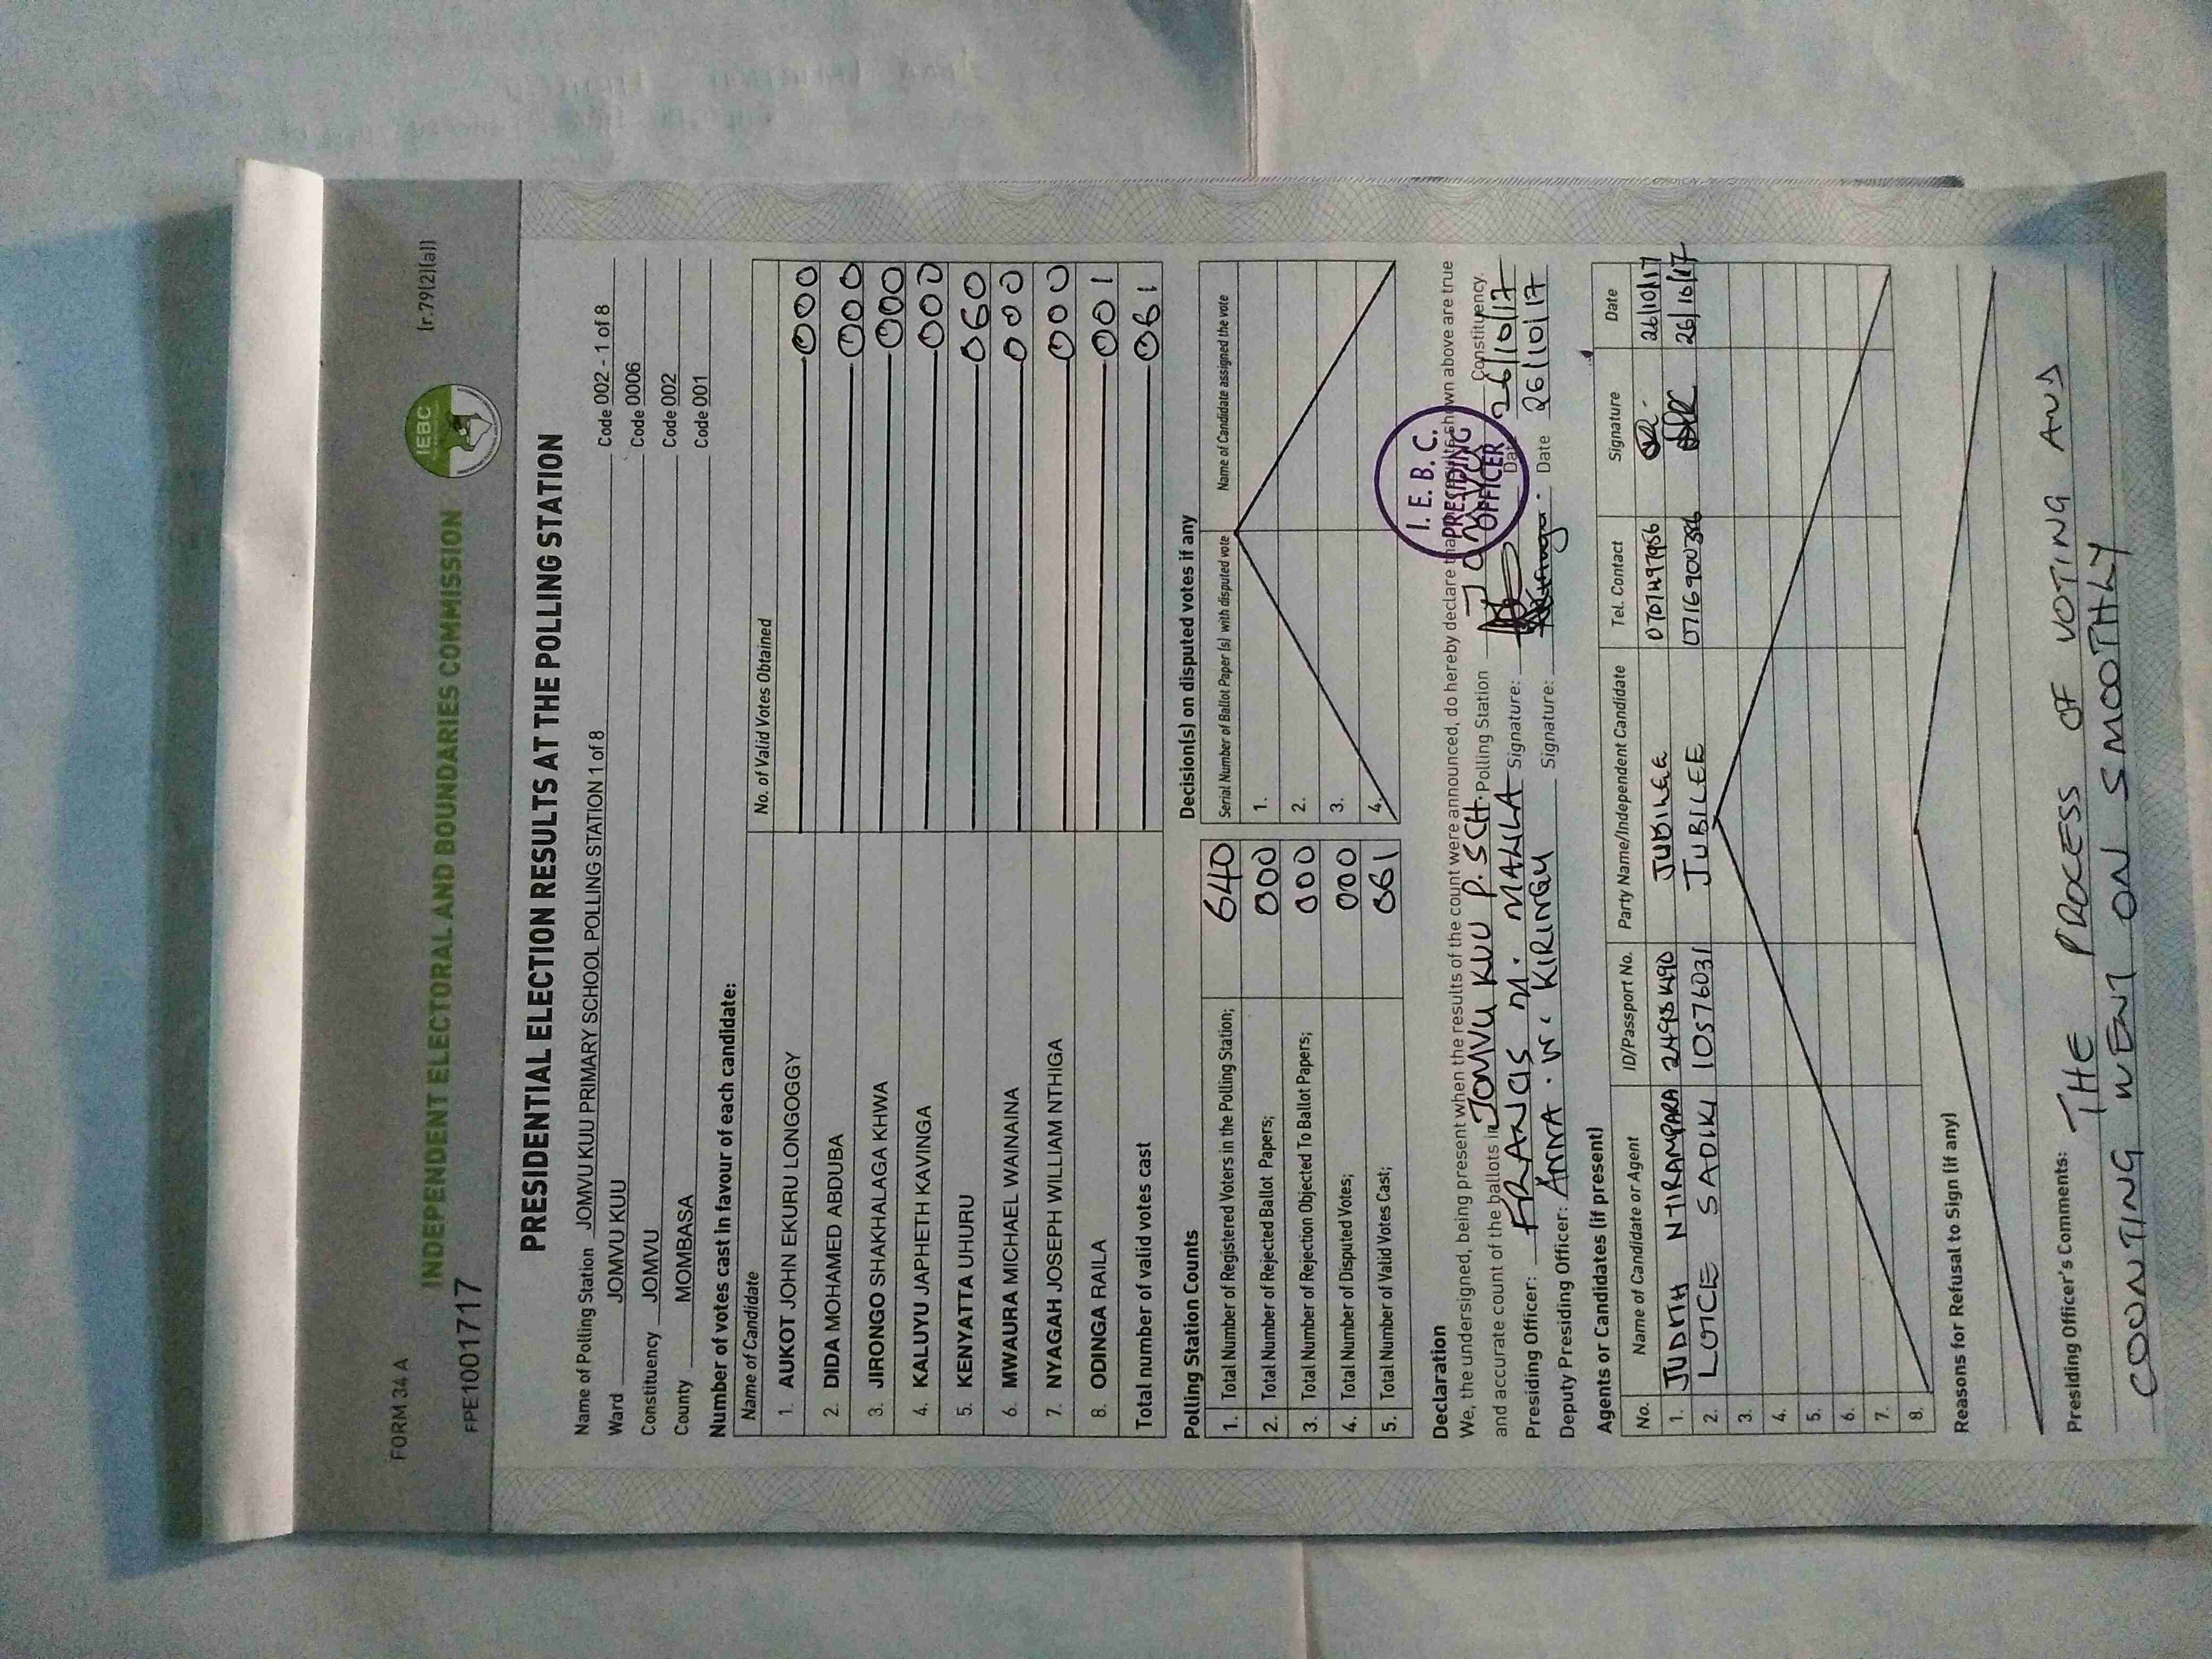 FORM 34 A
(r.79(2)(a))
INDEPENDENT ELECTORAL AND BOUNDARIES COMMISSION
IEBC
FPE1001717
PRESIDENTIAL ELECTION RESULTS AT THE POLLING STATION
Name of Polling Station JOMVU KUU PRIMARY SCHOOL POLLING STATION 1 of 8 Code 002 - 1 of 8
Ward JOMVU KUU Code 0006
Constituency JOMVU Code 002
County MOMBASA Code 001
Number of votes cast in favour of each candidate:
Name of Candidate No. of Valid Votes Obtained
1. AUKOT JOHN EKURU LONGOGGY 000
2. DIDA MOHAMED ABDUBA 000
3. JIRONGO SHAKHALAGA KHWA 000
4. KALUYU JAPHETH KAVINGA 000
5. KENYATTA UHURU 060
6. MWAURA MICHAEL WAINAINA 000
7. NYAGAH JOSEPH WILLIAM NTHIGA 000
8. ODINGA RAILA 001
Total number of valid votes cast 061
Polling Station Counts
1. Total Number of Registered Voters in the Polling Station; 640
2. Total Number of Rejected Ballot Papers; 000
3. Total Number of Rejection Objected To Ballot Papers; 000
4. Total Number of Disputed Votes; 000
5. Total Number of Valid Votes Cast; 061
Decision(s) on disputed votes if any
Serial Number of Ballot Paper (s) with disputed vote Name of Candidate assigned the vote
1.
2.
3.
4.
Declaration
We, the undersigned, being present when the results of the count were announced, do hereby declare that the results shown above are true
and accurate count of the ballots in JOMVU KUU P. SCH. Polling Station JOMVU Constituency.
Presiding Officer: FRANCIS M. MALILA Signature: Date 26/10/17
Deputy Presiding Officer: ANNA . W. KIRINGU Signature: Date 26/10/17
I. E. B. C.
PRESIDING
OFFICER
Agents or Candidates (if present)
No. Name of Candidate or Agent ID/Passport No. Party Name/Independent Candidate Tel. Contact Signature Date
1. JUDITH NTIRAMPARA 24984490 JUBILEE 26/10/17
2. LOICE SADIKI 10576031 JUBILEE 0716900386 26/10/17
3.
4.
5.
6.
7.
8.
Reasons for Refusal to Sign (if any)
Presiding Officer's Comments: THE PROCESS OF VOTING AND
COUNTING WENT ON SMOOTHLY